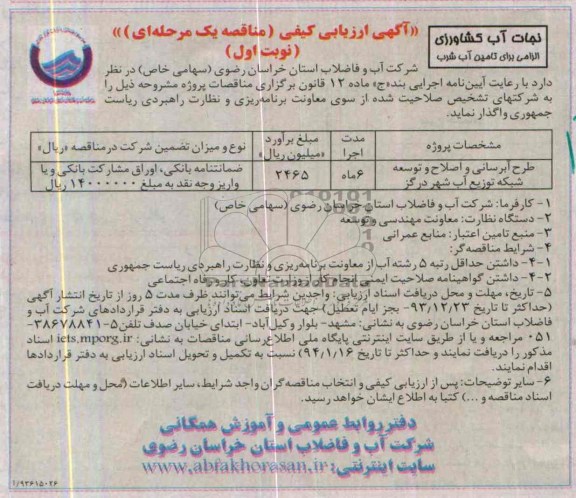 نجات آب کشاورزی
الزامی برای تامین آب شرب
«آگهی ارزیابی کیفی (مناقصه یک مرحله‌ای)»
(نوبت اول)
شرکت آب و فاضلاب استان خراسان رضوی (سهامی خاص) در نظر
دارد با رعایت آیین‌نامه اجرایی بند«ج» ماده ۱۲ قانون برگزاری مناقصات پروژه مشروحه ذیل را
به شرکتهای تشخیص صلاحیت شده از سوی معاونت برنامه‌ریزی و نظارت راهبردی ریاست
جمهوری واگذار نماید.
مشخصات پروژه | مدت اجرا | مبلغ برآورد «میلیون ریال» | نوع و میزان تضمین شرکت در مناقصه «ریال»
طرح آبرسانی و اصلاح و توسعه شبکه توزیع آب شهر درگز | ۶ماه | ۲۴۶۵ | ضمانتنامه بانکی، اوراق مشارکت بانکی و یا واریز وجه نقد به مبلغ ۱۴۰۰۰۰۰۰۰ ریال
۱- کارفرما: شرکت آب و فاضلاب استان خراسان رضوی (سهامی خاص)
۲- دستگاه نظارت: معاونت مهندسی و توسعه
۳- منبع تامین اعتبار: منابع عمرانی
۴- شرایط مناقصه‌گر:
۴-۱- داشتن حداقل رتبه ۵ رشته آب از معاونت برنامه‌ریزی و نظارت راهبردی ریاست جمهوری
۴-۲- داشتن گواهینامه صلاحیت ایمنی انجام کار از وزارت تعاون، کار و رفاه اجتماعی
۵- تاریخ، مهلت و محل دریافت اسناد ارزیابی: واجدین شرایط می‌توانند ظرف مدت ۵ روز از تاریخ انتشار آگهی
(حداکثر تا تاریخ ۹۳/۱۲/۲۳- بجز ایام تعطیل) جهت دریافت اسناد ارزیابی به دفتر قراردادهای شرکت آب و
فاضلاب استان خراسان رضوی به نشانی: مشهد- بلوار وکیل‌آباد- ابتدای خیابان صدف تلفن ۵-۳۸۶۷۸۸۴۱-
۰۵۱ مراجعه و یا از طریق سایت اینترنتی پایگاه ملی اطلاع‌رسانی مناقصات به نشانی: iets.mporg.ir اسناد
مذکور را دریافت نمایند و حداکثر تا تاریخ ۹۴/۱/۱۶) نسبت به تکمیل و تحویل اسناد ارزیابی به دفتر قراردادها
اقدام نمایند.
۶- سایر توضیحات: پس از ارزیابی کیفی و انتخاب مناقصه‌گران واجد شرایط، سایر اطلاعات (محل و مهلت دریافت
اسناد مناقصه و ...) کتبا به اطلاع ایشان خواهد رسید.
دفتر روابط عمومی و آموزش همگانی
شرکت آب و فاضلاب استان خراسان رضوی
سایت اینترنتی: www.abfakhorasan.ir
۱/۹۳۶۱۵۰۲۶